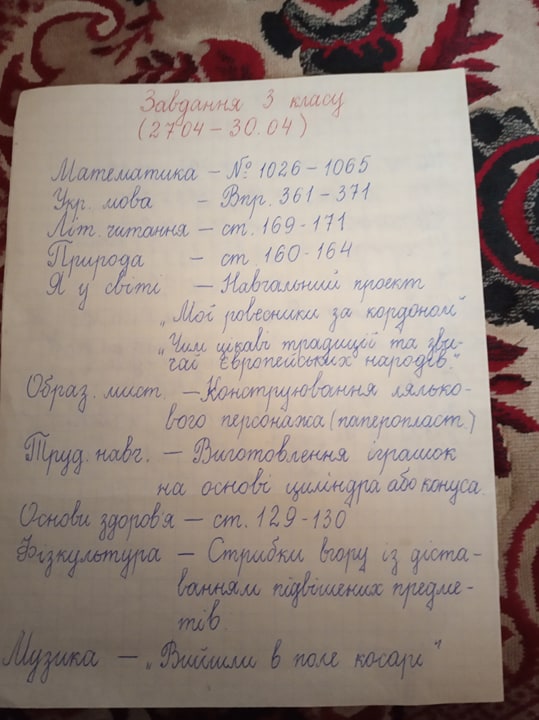 Завдання 3 класу
(27.04 – 30.04)
Математика – № 1026 – 1065
Укр. мова – Впр. 361 – 371
Літ. читання – ст. 169 – 171
Природа – ст 160 – 164
Я у світі – Навчальний проект
„Мої ровесники за кордоном"
„Чим цікаві традиції та зви-
чаї європейських народів."
Образ. мист. – Конструювання лялько-
вого персонажа (паперопласт.)
Труд. навч. – Виготовлення іграшок
на основі циліндра або конуса.
Основи здоров'я – ст. 129 – 130
Фізкультура – Стрибки вгору із діста-
ванням підвішених предме-
тів.
Музика – „Вийшли в поле косарі"